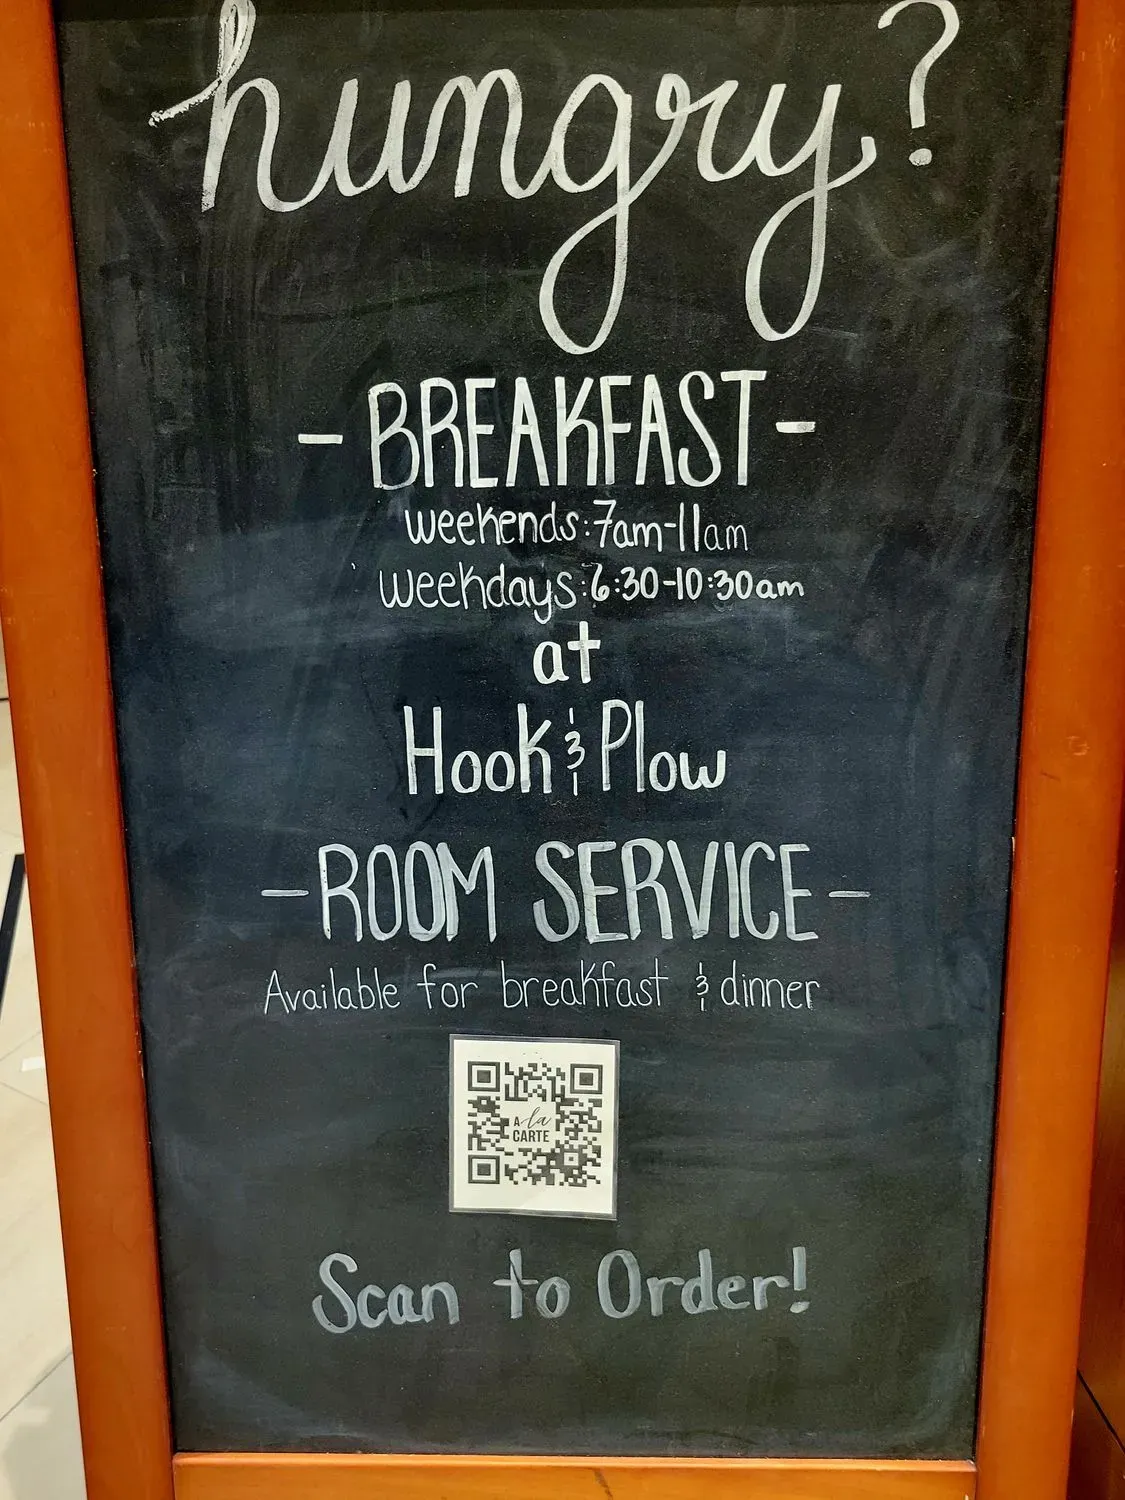 hungry?
- BREAKFAST -
weekends: 7am-11am
weekdays: 6:30-10:30am
at
Hook & Plow
- ROOM SERVICE -
Available for breakfast & dinner
A la
CARTE
Scan to Order!